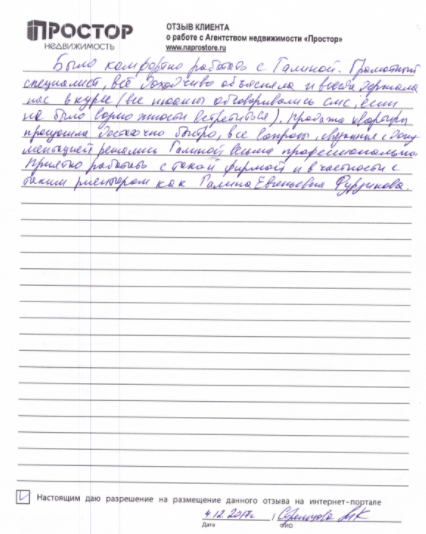 ПРОСТОР
НЕДВИЖИМОСТЬ
ОТЗЫВ КЛИЕНТА
о работе с Агентством недвижимости «Простор»
www.naprostore.ru
Было комфортно работать с Галиной. Грамотный
специалист, всё доходчиво объясняла и всегда держала
нас в курсе (все моменты обговаривались смс, если
не было возможности встретиться), продажа квартиры
прошла достаточно быстро, все вопросы, связанные с доку
ментацией решались Галиной весьма профессионально.
Приятно работать с такой фирмой и в частности с
таким риэлтором как Галина Евгеньевна
Настоящим даю разрешение на размещение данного отзыва на интернет-портале
4.12.2017г. /
Дата
ФИО